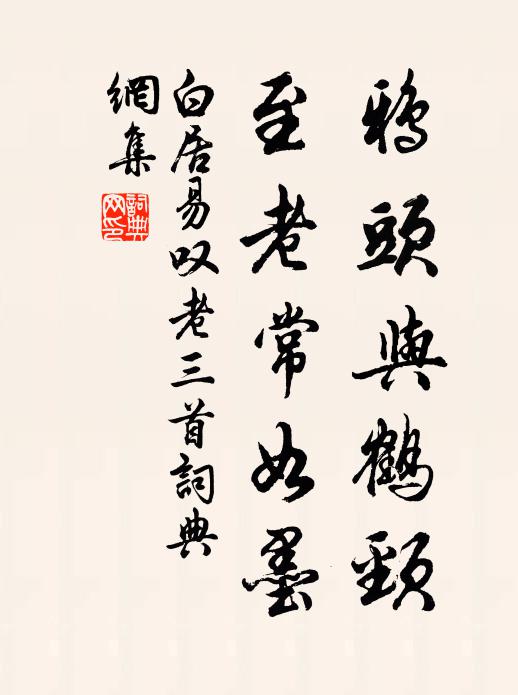 鴉頭與鶴頸
至老常如墨
白居易叹老三首詞典
網集
詞典
网印